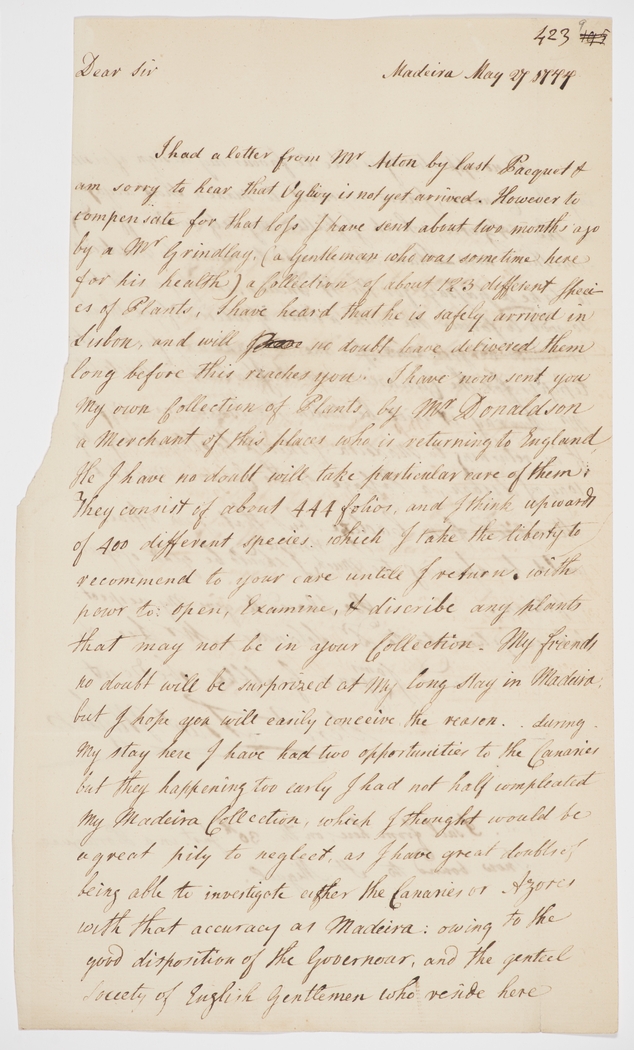 423
Dear Sir Madeira May 27 1777
I had a letter from Mr Aiton by last Pacquet &
am sorry to hear that Ugljoy is not yet arrived. However to
compensate for that loss I have sent about two months ago
by a Mr Grindlay, (a Gentleman who was sometime here
for his health) a Collection of about 123 different Speci-
es of Plants, I have heard that he is safely arrived in
Lisbon, and will no doubt have delivered them
long before this reaches you. I have now sent you
My own Collection of Plants by Mr Donaldson
a Merchant of this place who is returning to England,
He I have no doubt will take particular care of them:
They consist of about 444 folios, and I think upwards
of 400 different species. which I take the liberty to
recommend to your care untill I return. with
powr to: open, Examine, & discribe any plants
that may not be in your Collection - My friends
no doubt will be surprized at My long stay in Madeira;
but I hope you will easily conceive the reason. . during
My stay here I have had two opportunities to the Canaries
but they happening too early I had not half compleated
My Madeira Collection, which I thought would be
a great pity to neglect, as I have great doubts of
being able to investigate either the Canaries or Azores
with that accuracy as Madeira: owing to the
good disposition of the Governour, and the genteel
Society of English Gentlemen who reside here